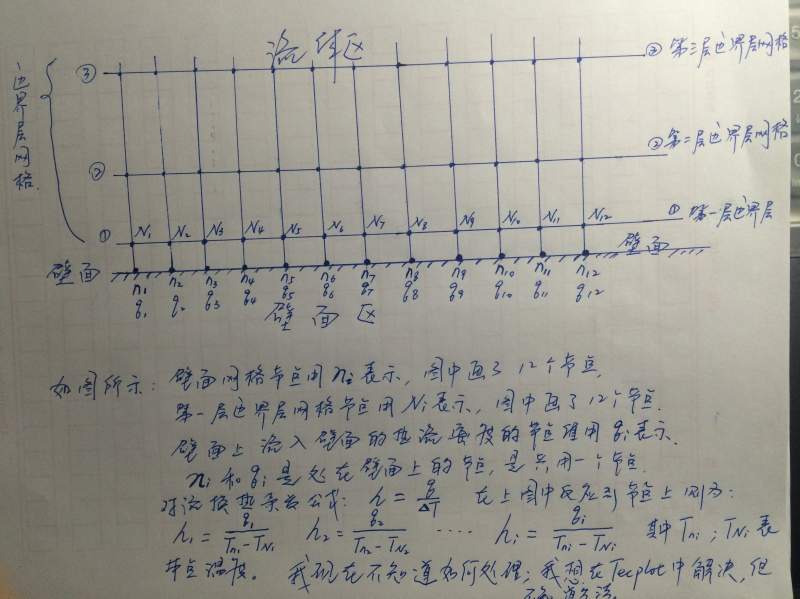 流体区
边界层网格
③ ③ 第三层边界层网格
② ② 第二层边界层网格
① N1 N2 N3 N4 N5 N6 N7 N8 N9 N10 N11 N12 ① 第一层边界层
壁面 壁面
n1 n2 n3 n4 n5 n6 n7 n8 n9 n10 n11 n12
q1 q2 q3 q4 q5 q6 q7 q8 q9 q10 q11 q12
壁面区
如图所示: 壁面网格节点用ni表示, 图中画了12个节点.
第一层边界层网格节点用Ni表示, 图中画了12个节点.
壁面上流入壁面的热流密度的节点值用qi表示.
ni和qi是处在壁面上的节点, 是共用一个节点.
对流换热系数公式: h = q/ΔT 在上图中反应到节点上则为:
h1 = q1/(Tn1 - TN1) h2 = q2/(Tn2 - TN2) ···· hi = qi/(Tni - TNi) 其中Tni; TNi表
节点温度。 我现在不知道如何处理; 我想在Tecplot中解决, 但